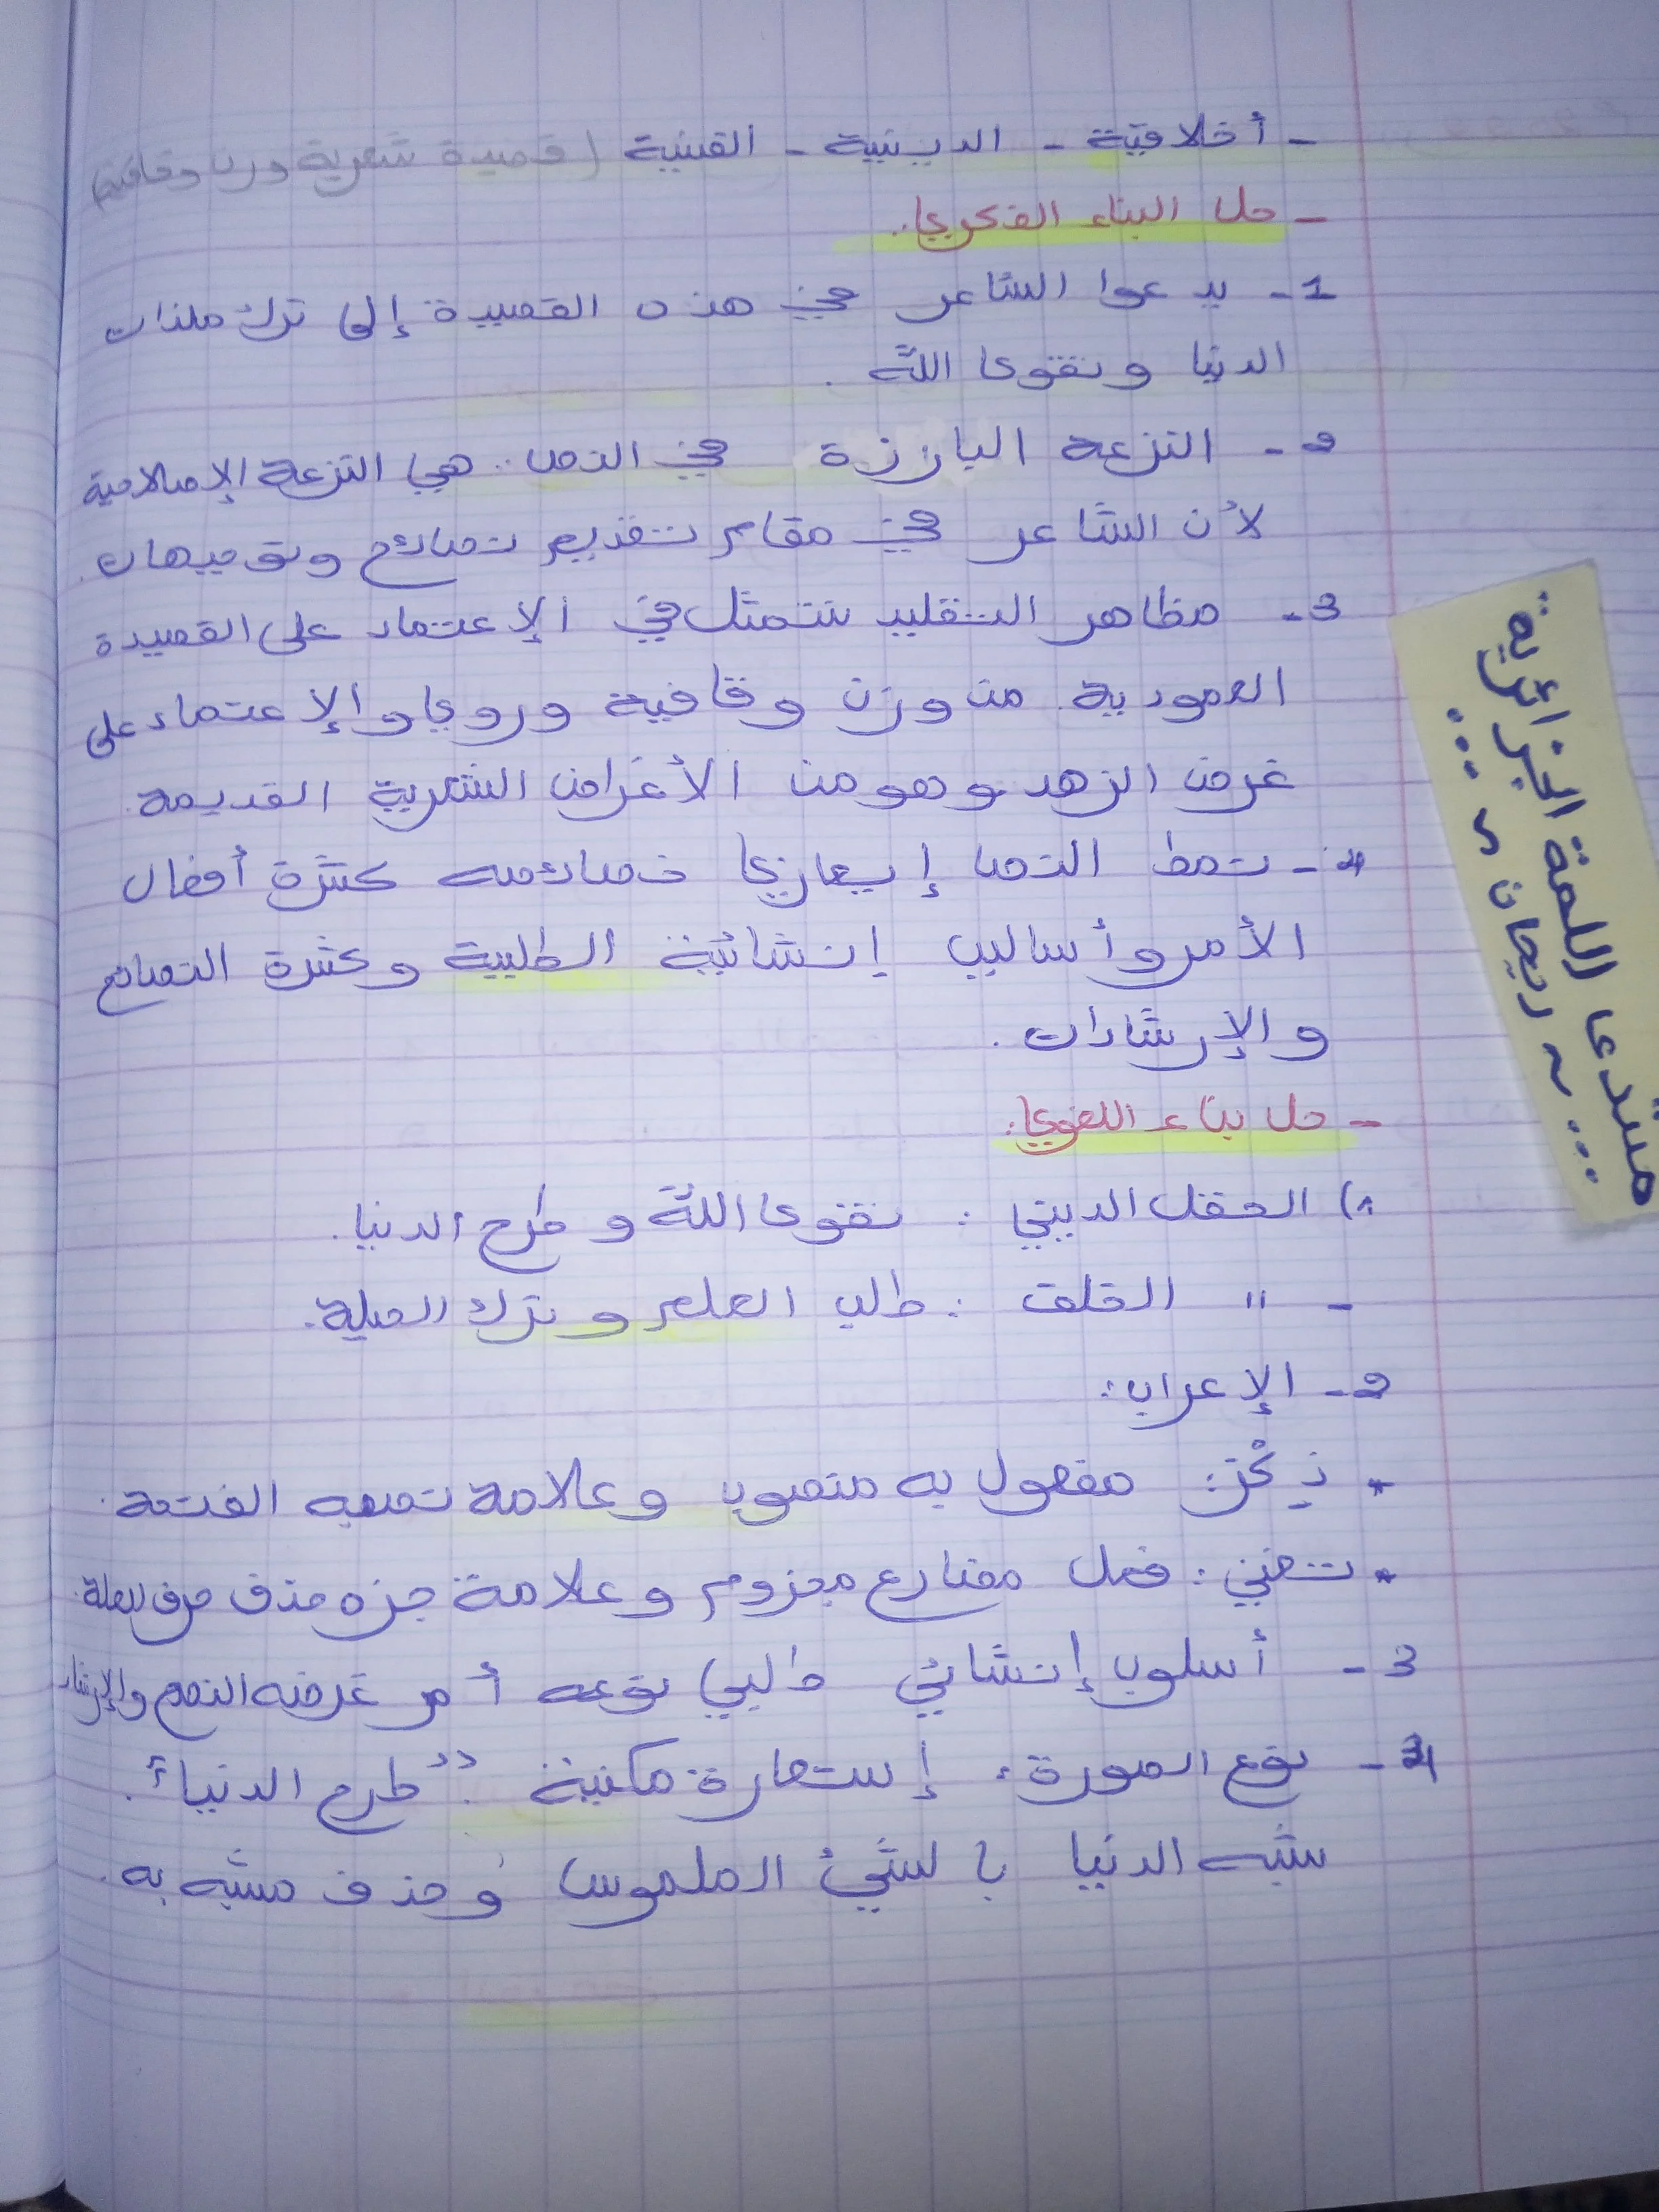 - أخلاقية - الدينية - الفنية (قصيدة شعرية وزن وقافية)
- حل البناء الفكري:
1- يدعوا الشاعر في هذه القصيدة إلى ترك ملذات
الدنيا وتقوى الله .
2- النزعة البارزة في النص: هي النزعة الإصلاحية
لأن الشاعر في مقام تقديم نصائح وتوجيهات.
3- مظاهر التقليد تتمثل في الإعتماد على القصيدة
العمودية من وزن وقافية وروي والإعتماد على
غرض الزهد وهو من الأغراض الشعرية القديمة.
4- نمط النص إيعازي خصائصه كثرة أفعال
الأمر وأساليب إنشائية الطلبية وكثرة النصائح
والإرشادات .
- حل بناء اللغوي:
1) الحقل الديني : تقوى الله و طرح الدنيا.
- " الخلق : طلب العلم و ترك الحيلة.
2- الإعراب:
* ذِكْرَ: مفعول به منصوب وعلامة نصبه الفتحة.
* تغني : فعل مضارع مجزوم وعلامة جزه حذف حرف العلة.
3- أسلوب إنشائي طلبي نوعه أمر غرضه النصح والإرشاد
4- نوع الصورة: إستعارة مكنية : "طرح الدنيا".
شبه الدنيا بالشيئ الملموس وحذف مشبه به.
منتدى اللمة الجزائرية.
ريحان د